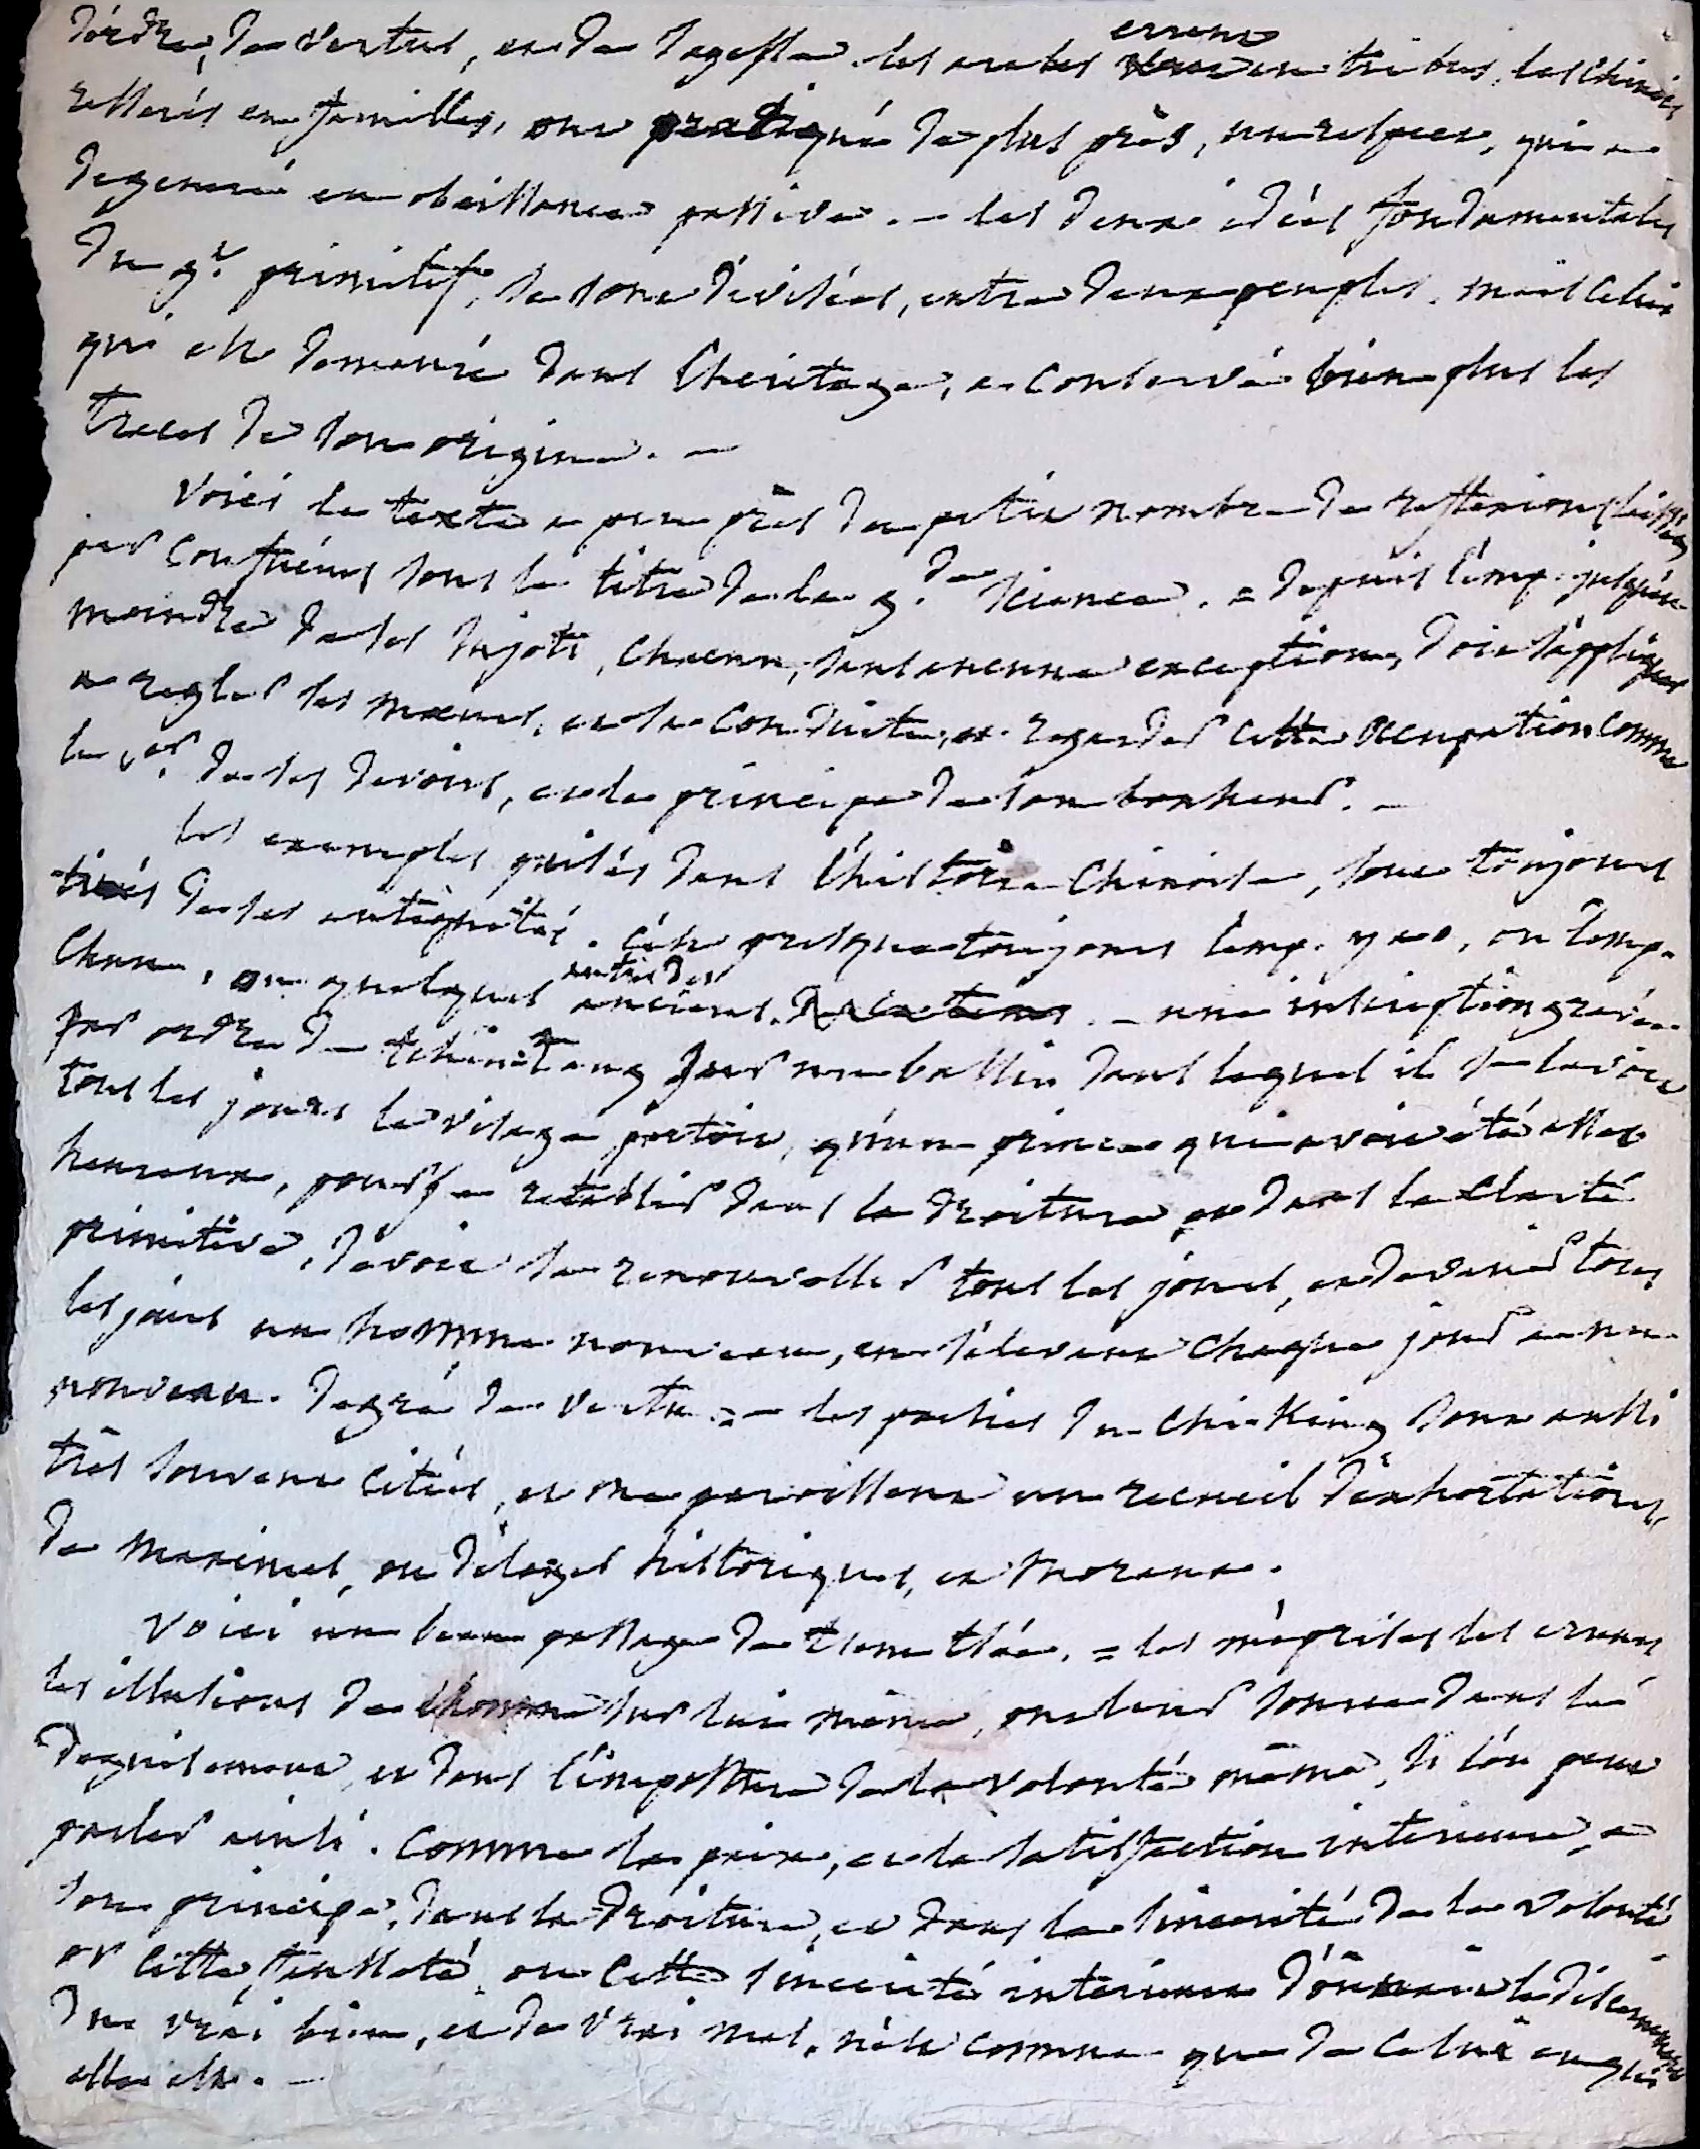 d'ordre, de vertus, et de sagesse. les arabes errans en tribus, les chinois
resserrés en familles, ont pratiqué de plus près, un respect, qui a
degeneré en obeissance passive. – les deux idées fondamentales
du g.t primitif, se sont divisées, entre deux peuples. mais celui
qui est demeuré dans l'heritage, a conservé bien plus les
traces de son origine. –
Voici le texte a peu près du petit nombre de reflexions
par Confucius sous le titre de la g.de science. = depuis l'emp. jusqu'au
moindre de ses sujets, chacun, sans aucune exception, doit s'appliquer
a regler ses mœurs, et sa conduite, et regarder cette occupation comme
le 1.er de ses devoirs, et le principe de son bonheur. –
les exemples cités dans l'histoire chinoise, sont toujours
tirés de ses antiquités. c'est presque toujours l'emp. yao, ou l'emp.
Chun, ou quelques autres des anciens. – une inscription gravée
par ordre de tchin-tang sur un bassin dans lequel il se lavoit
tous les jours le visage portoit, qu'un prince qui avoit été assez
heureux, pour se retablir dans la droiture et dans la clarté
primitive, devoit se renouveller tous les jours, et devenir tous
les jours un homme nouveau, en s'elevant chaque jour a un
nouveau degré de vertu. = – les poesies du Chi-King sont aussi
très souvent citées, et me paroissent un recueil d'exhortations,
de maximes, ou d'eloges historiques, et moraux.
Voici un beau passage de = les méprises les erreurs
les illusions de l'homme sur lui même, ont leur source dans le
deguisement, et dans l'imposture de la volonté même, si l'on peut
parler ainsi. comme la paix, et la satisfaction interieure, a
son principe, dans la droiture, et dans la sincerité de la volonté
or cette, ou cette sincerité interieure d'où nait le discernement
du vrai bien, et du vrai mal, n'est connue que de celui en qui
elle est. –